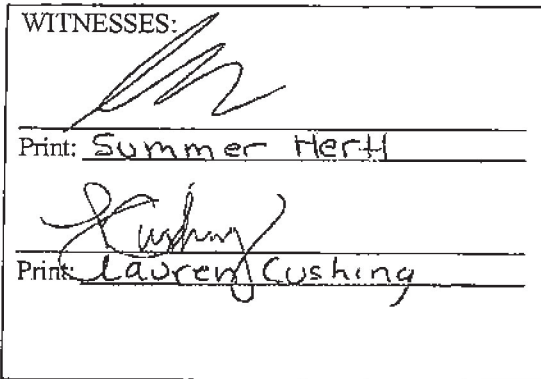 WITNESSES:
Print: Summer
Cushing
Print: Lauren Cushing